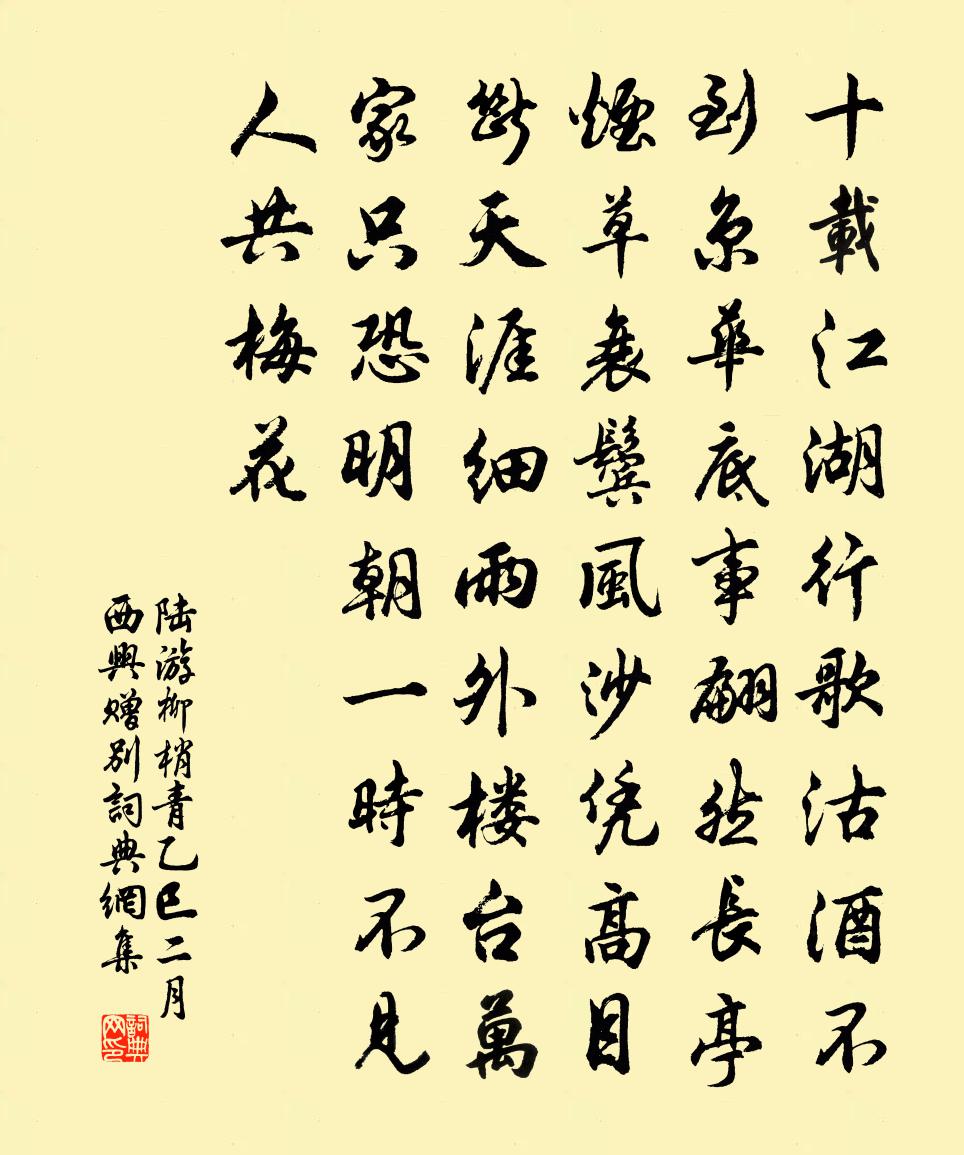 十載江湖行歌沽酒不
到京華底事翩然長亭
煙草衰鬢風沙凭高目
斷天涯細雨外楼台萬
家只恐明朝一時不見
人共梅花
陆游柳梢青乙巳二月
西興贈别詞典網集
詞典网印